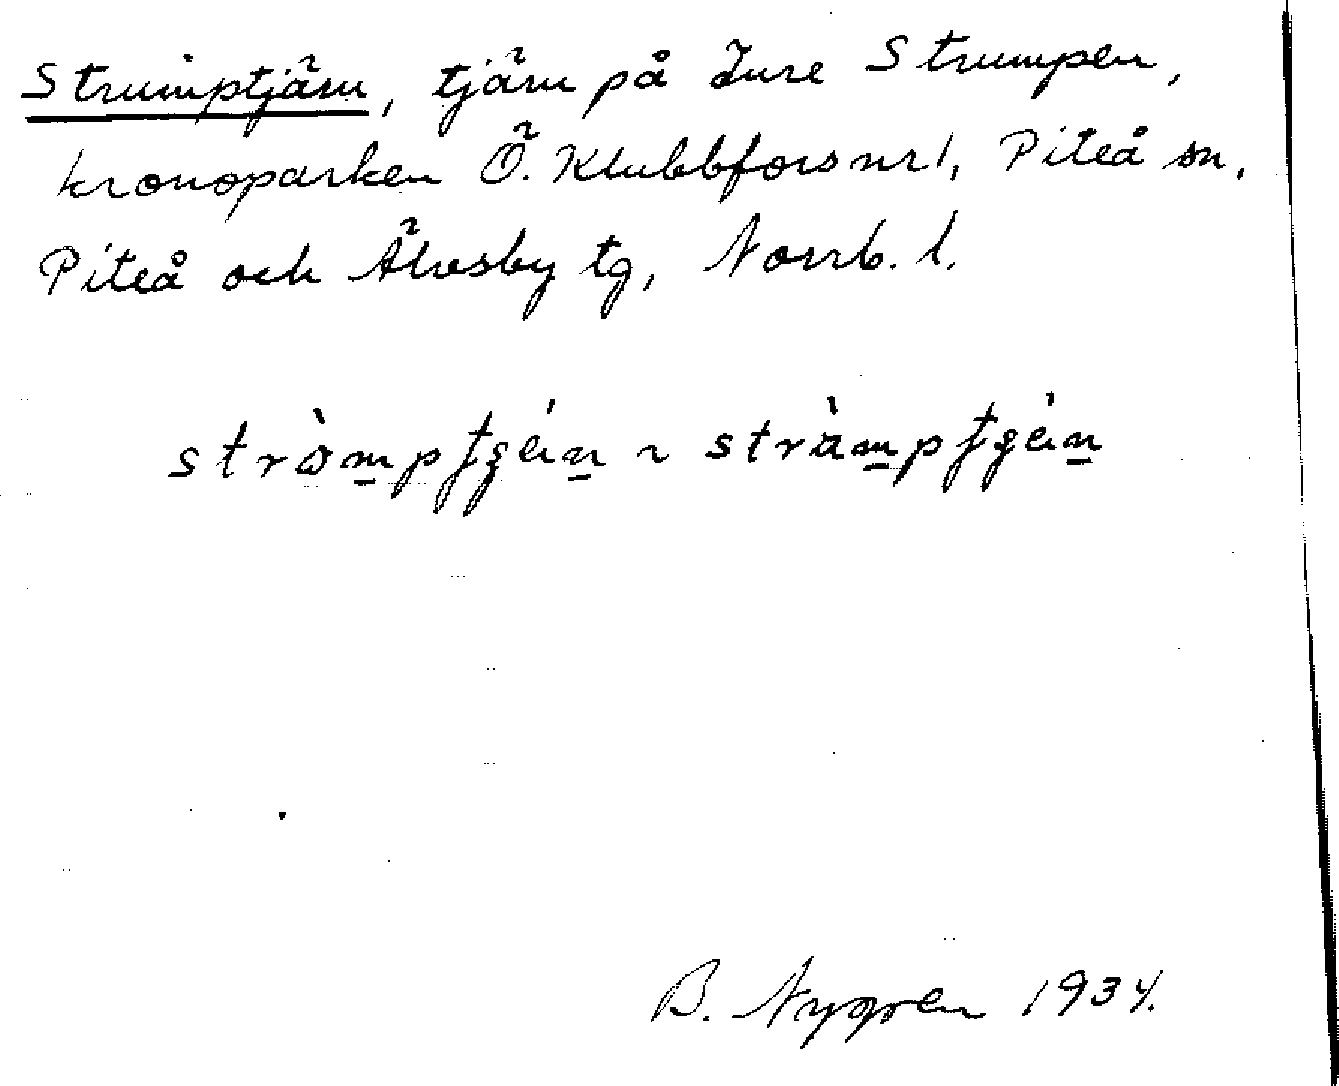 Strumptjärn, tjärn på Inre Strumpen,
kronoparken Ö. Klubbfors nr 1, Piteå sn,
Piteå och Älvsby tg, Norrb. l.
B. Nygren 1934.